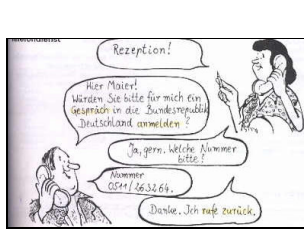 Rezeption!
Hier Maier!
Würden Sie bitte für mich ein
Gespräch in die Bundesrepublik
Deutschland anmelden?
Ja, gern. Welche Nummer
bitte?
Nummer
0511/263264.
Danke. Ich rufe zurück.